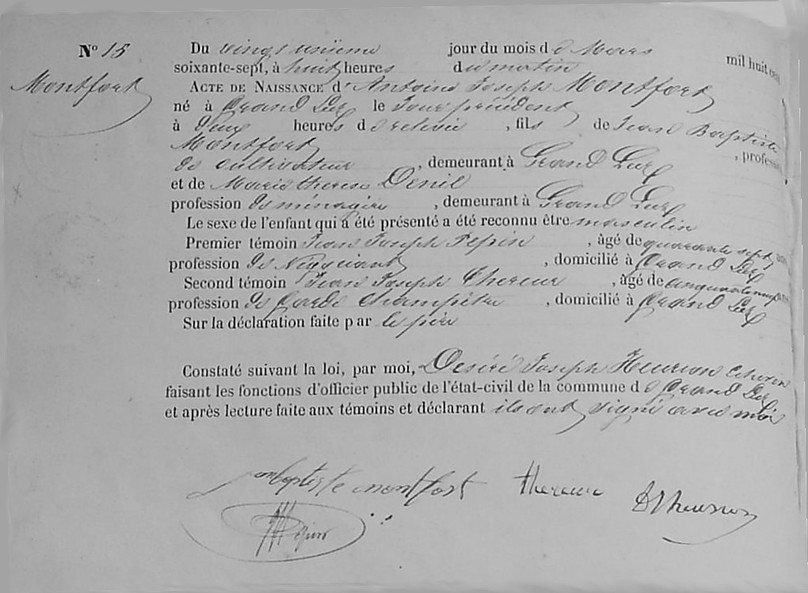 N° 15
Montfort
Du vingt unième jour du mois de Mars mil huit cent
soixante-sept, à huit heures du matin
ACTE DE NAISSANCE d'Antoine Joseph Montfort
né à Grand Lez le jour précédent
à deux heures de relevée, fils de Jean Baptiste
Montfort, profession
de cultivateur, demeurant à Grand Lez
et de Marie therese Denil
profession de ménagère, demeurant à Grand Lez
Le sexe de l'enfant qui a été présenté a été reconnu être masculin
Premier témoin Jean Joseph Pepin, âgé de quarante sept ans
profession de Négociant, domicilié à Grand Lez
Second témoin Jean Joseph Thereur, âgé de cinquante neuf ans
profession de Garde Champêtre, domicilié à Grand Lez
Sur la déclaration faite par le père
Constaté suivant la loi, par moi, Desiré Joseph Henrion Echevin
faisant les fonctions d'officier public de l'état-civil de la commune de Grand Lez
et après lecture faite aux témoins et déclarant ils ont signé avec moi
jean baptiste montfort thereur
Pepin